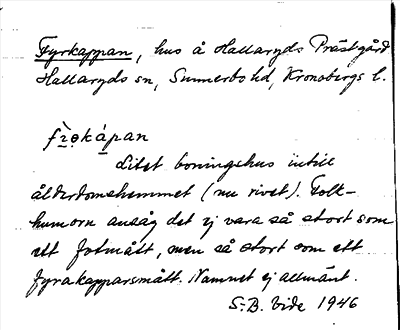 Fyrkappan, hus å Hallaryds Prästgård
Hallaryds sn, Sunnerbo hd, Kronobergs l.
fi̠̖rọká̠pan
Litet boningshus intill
ålderdomshemmet (nu rivet). Folk-
humorn ansåg det ej vara så stort som
ett fotmått, men så stort som ett
fyrakapparsmått. Namnet ej allmänt.
S. B. Vide 1946